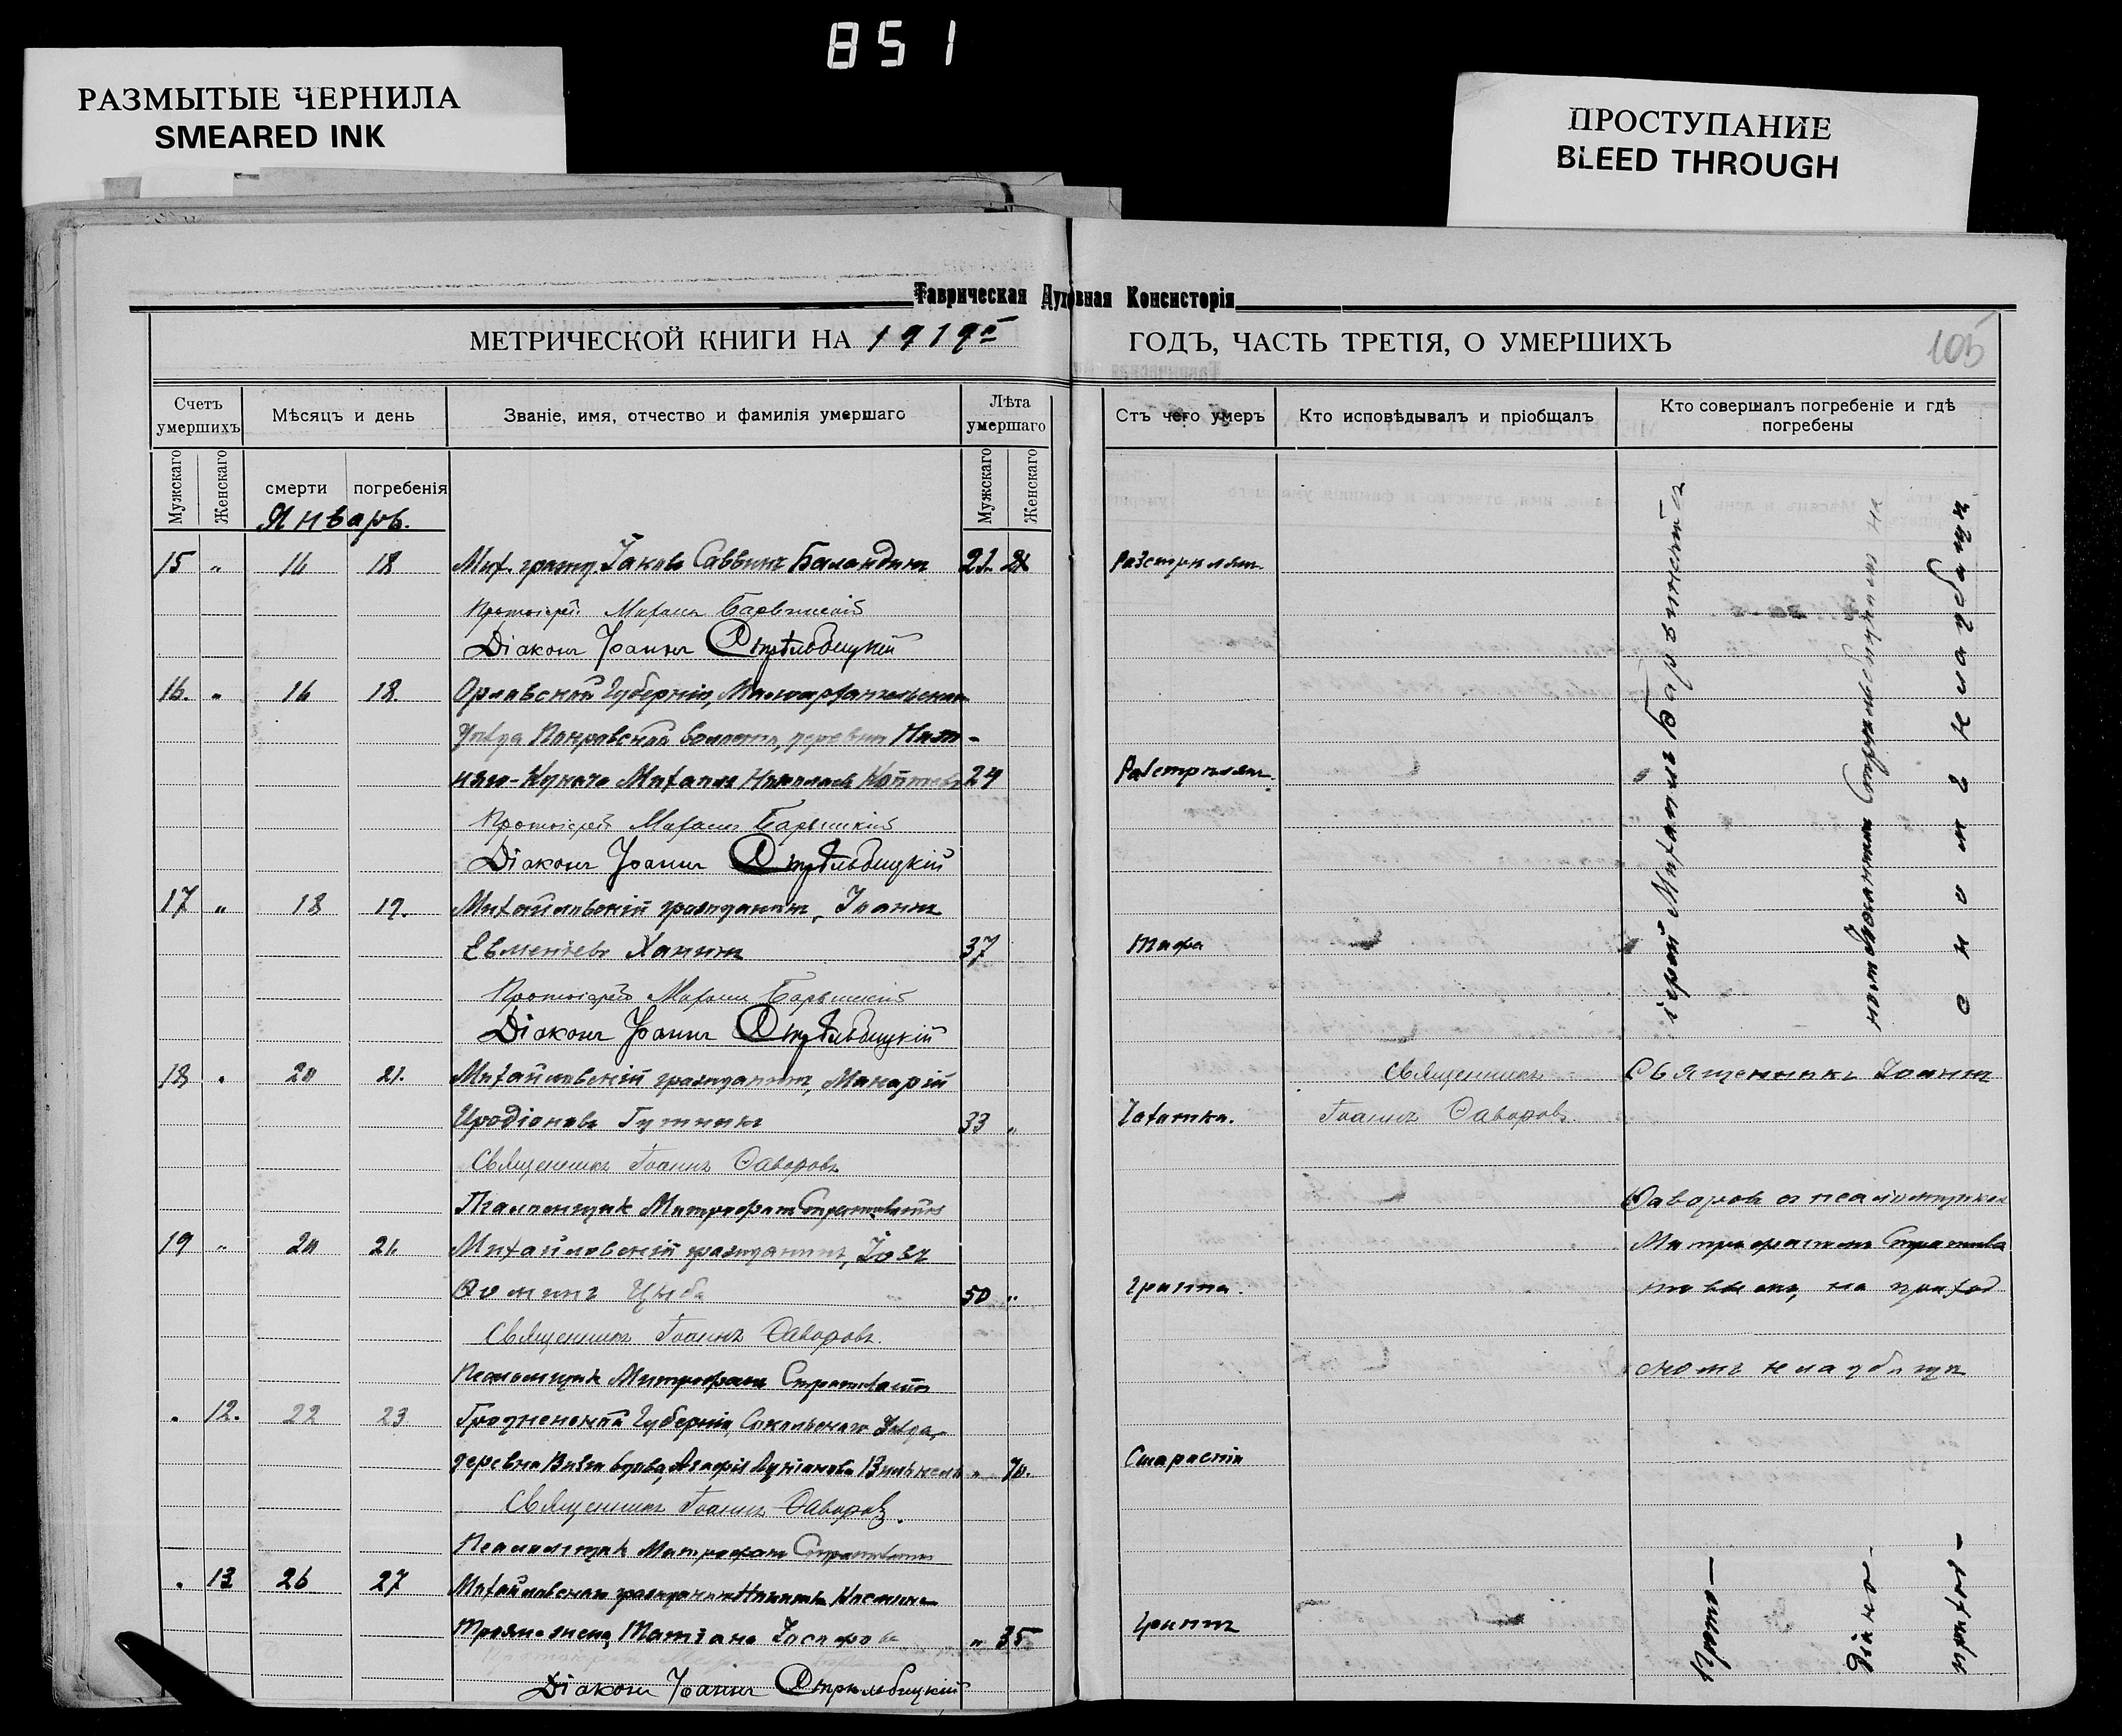 851
РАЗМЫТЫЕ ЧЕРНИЛА
SMEARED INK
ПРОСТУПАНИЕ
BLEED THROUGH
Таврическая Духовная Консисторія
МЕТРИЧЕСКОЙ КНИГИ НА 1919 г.
ГОДЪ, ЧАСТЬ ТРЕТІЯ, О УМЕРШИХЪ
105
Счетъ умершихъ
Мѣсяцъ и день
Званіе, имя, отчество и фамилія умершаго
Лѣта умершаго
Мужскаго
Женскаго
смерти
погребенія
Мужскаго
Женскаго
Январь.
Отъ чего умеръ
Кто исповѣдывалъ и пріобщалъ
Кто совершалъ погребеніе и гдѣ погребены
15 " 16 18 Мих. гражд. Іаковъ Саввинъ Баландинъ 21. Разстрѣлянъ
Протоіерей Михаилъ Барвинскій
Діаконъ Іоаннъ Стрѣльбицкій
16. " 16 18. Орловской Губерніи, Малоархангельскаго
Уѣзда Покровской волости, деревни Ниж-
няго- Михаилъ Николаевъ 24 Разстрѣлянъ.
Протоіерей Михаилъ Барвинскій
Діаконъ Іоаннъ Стрѣльбицкій
17 " 18 19. Михайловскій гражданинъ, Іоаннъ
Евментіевъ Ханинъ 37 Тифъ
Протоіерей Михаилъ Барвинскій
Діаконъ Іоаннъ Стрѣльбицкій
18 " 20 21. Михайловскій гражданинъ, Макарій
Иродіоновъ 33 " Чахотка.
Священникъ Іоаннъ Ѳаворовъ
Псаломщикъ Митрофанъ
19 " 20 21. Михайловскій гражданинъ, Іовъ
Ѳоминъ Цыба 50 " Гриппа.
Священникъ Іоаннъ Ѳаворовъ.
Псаломщикъ Митрофанъ
" 12. 22 23 Гродненской Губерніи, Сокольскаго Уѣзда,
деревни Агафія Лукіанова " 70. Старостію
Священникъ Іоаннъ Ѳаворовъ.
Псаломщикъ Митрофанъ
" 13 26 27 Михайловскаго гражданина
жена, Татіана " 35 Гриппъ
Діаконъ Іоаннъ Стрѣльбицкій
Священникъ
Іоаннъ Ѳаворовъ.
Прото-
іерей Михаилъ Барвинскій съ
Діако-
номъ Іоанномъ Стрѣльбицкимъ на
приход-
скомъ кладбищѣ
Священникъ Іоаннъ
Ѳаворовъ съ псаломщикомъ
Митрофаномъ
на приход
скомъ кладбищѣ